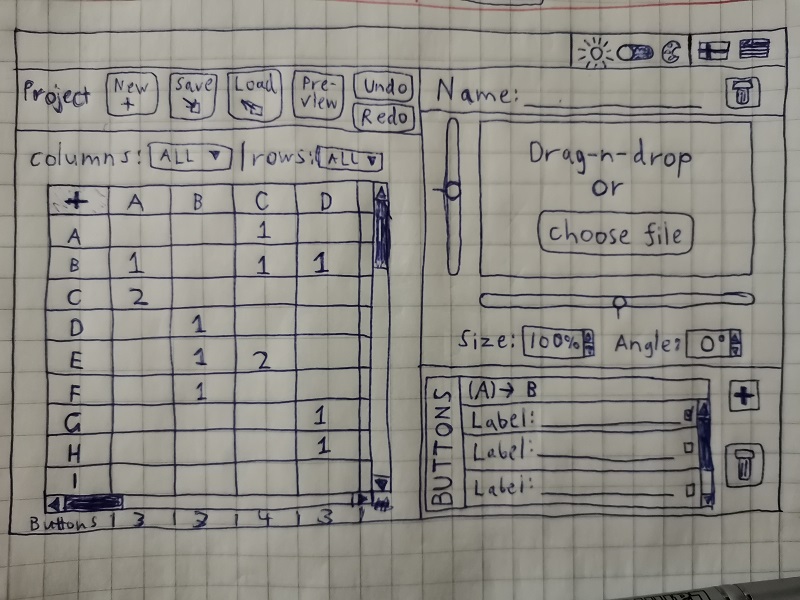 Project
New
+
Save
Load
Pre-
view
Undo
Redo
columns: ALL ▼ / rows: ALL ▼
+ A B C D
A 1
B 1 1 1
C 2
D 1
E 1 2
F 1
G 1
H 1
I
Buttons | 3 | 3 | 4 | 3 |
Name:
Drag-n-drop
or
choose file
Size: 100% Angle: 0°
BUTTONS
(A)→ B
Label:
Label:
Label:
+